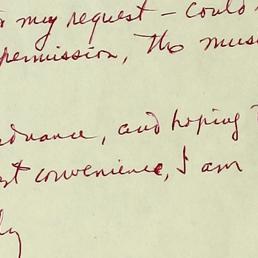 my request – could
permission, this mus
advance, and hoping
st convenience, I am
ly